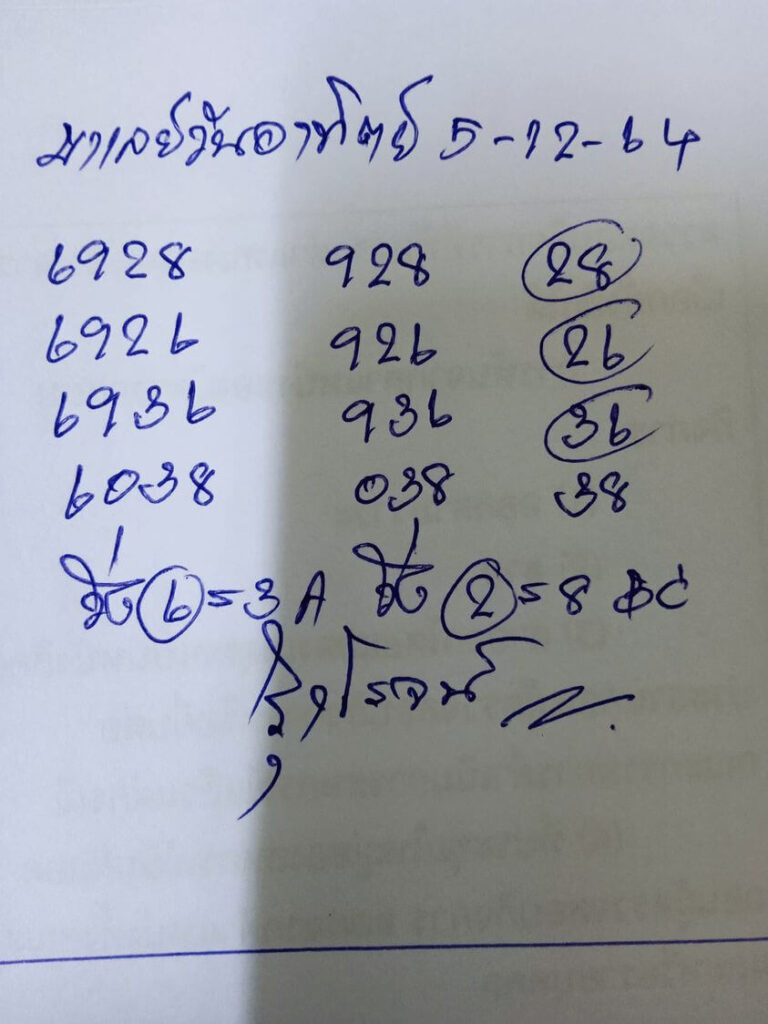 มาเลย์วันอาทิตย์ 5-12-64
6928 928 28
6926 926 26
6936 936 36
6038 038 38
วิ่ง 6=3 A วิ่ง 2=8 BC